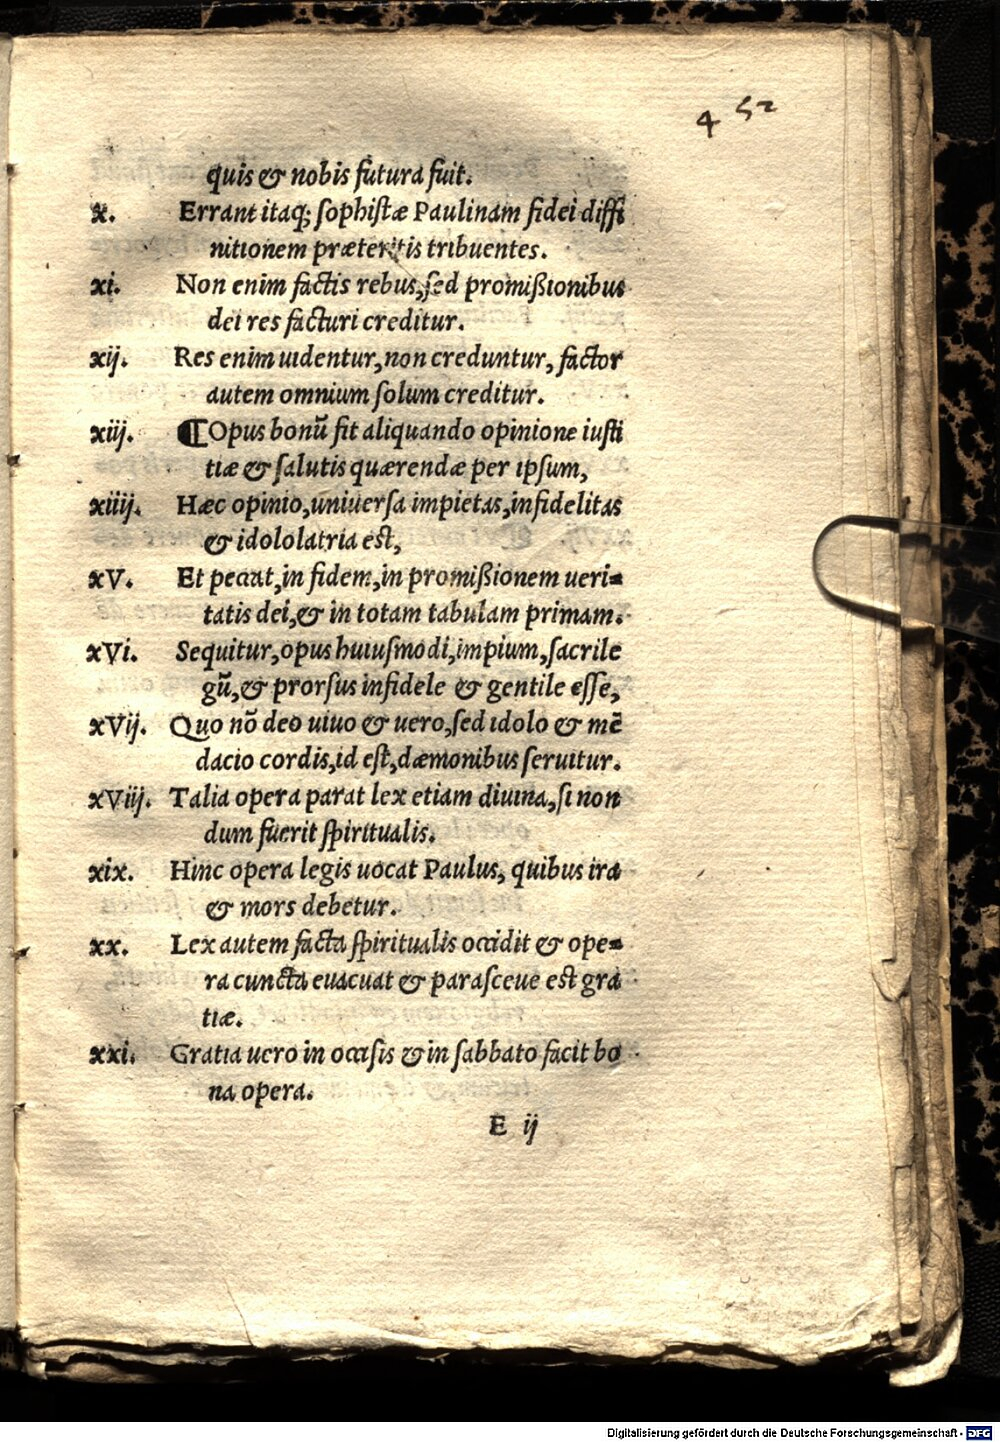 4 52
quis & nobis futura fuit.
x. Errant itaq; ſophiſtæ Paulinam fidei diffi
nitionem præteritis tribuentes.
xi. Non enim factis rebus, ſed promiſsionibus
dei res facturi creditur.
xij. Res enim uidentur, non creduntur, factor
autem omnium ſolum creditur.
xiij. ¶ Opus bonũ fit aliquando opinione iuſti
tiæ & ſalutis quærendæ per ipſum,
xiiij. Hæc opinio, uniuerſa impietas, infidelitas
& idololatria eſt,
xV. Et peccat, in fidem, in promiſsionem ueri=
tatis dei, & in totam tabulam primam.
xVi. Sequitur, opus huiuſmodi, impium, ſacrile
gũ, & prorſus infidele & gentile eſſe,
xVij. Quo nõ deo uiuo & uero, ſed idolo & mẽ
dacio cordis, id eſt, dæmonibus ſeruitur.
xViij. Talia opera parat lex etiam diuina, ſi non
dum fuerit ſpiritualis.
xix. Hinc opera legis uocat Paulus, quibus ira
& mors debetur.
xx. Lex autem facta ſpiritualis occidit & ope=
ra cuncta euacuat & paraſceue eſt gra
tiæ.
xxi. Gratia uero in occiſis & in ſabbato facit bo
na opera.
E ij
Digitalisierung gefördert durch die Deutsche Forschungsgemeinschaft - DFG